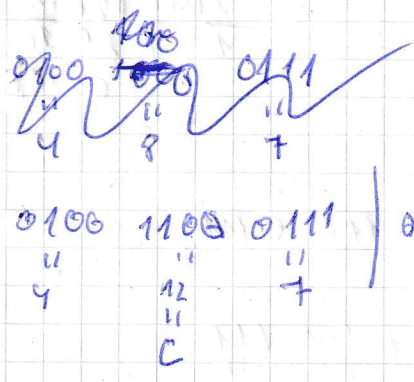 0100 0111
" " "
4 8 7
0100 1100 0111 | 0
" " "
4 12 7
"
C